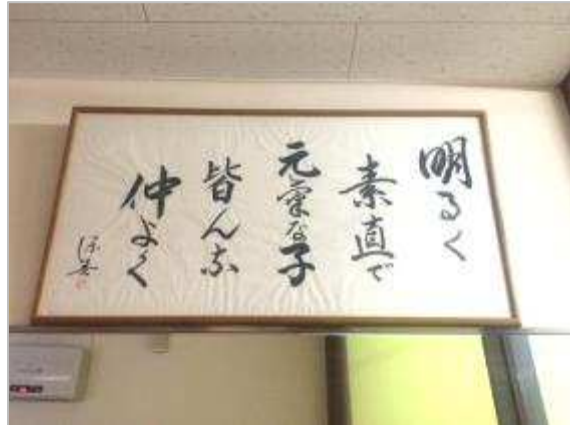 明るく
素直で
元氣な子
皆んな
仲よく